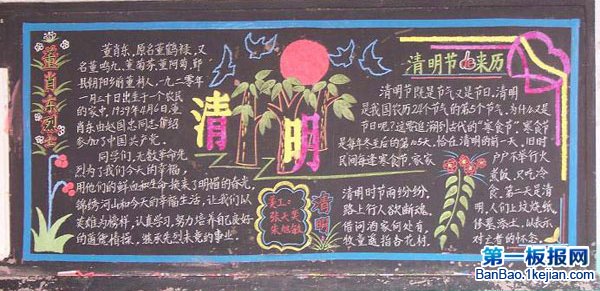 董肖东烈士
董肖东,原名董鹤禄,又
名董鸣九,董菊芬,董阿菊,鄞
县朝阳乡前董村人,一九二零年
一月二十日出生于一个农民
的家中,1939年4月6日,董
肖东由赵国忠同志介绍
参加了中国共产党。
同学们,无数革命先
烈为了我们今天的幸福,
用他们的鲜血和生命换来了明媚的春光,
锦绣河山和今天的幸福生活,让我们以
英雄为榜样,认真学习,努力培养自己良好
的道德情操,继承先烈未竟的事业。
清明
美工:
张天英
清明
清明时节雨纷纷,
路上行人欲断魂。
借问酒家何处有,
牧童遥指杏花村。
清明节的来历
清明节既是节气又是节日,清明
是我国农历24个节气的第5个节气,为什么又是
节日呢?这需追溯到古代的“寒食节”,寒食节
是每年冬至后的第105天,恰在清明的前一天,旧时
民间每逢寒食节,家家
户户不举行火
煮饭,只吃冷
食。第二天是清
明,人们上坟烧纸,
修墓添土,以表示
对亡者的怀念。
第一板报网
BanBao.1kejian.com